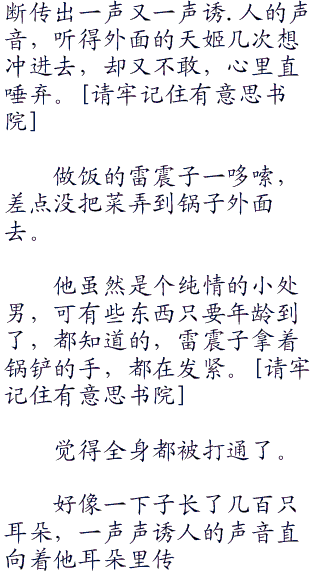 断传出一声又一声诱.人的声
音，听得外面的天姬几次想
冲进去，却又不敢，心里直
唾弃。[请牢记住有意思书
院]
做饭的雷震子一哆嗦，
差点没把菜弄到锅子外面
去。
他虽然是个纯情的小处
男，可有些东西只要年龄到
了，都知道的，雷震子拿着
锅铲的手，都在发紧。[请牢
记住有意思书院]
觉得全身都被打通了。
好像一下子长了几百只
耳朵，一声声诱人的声音直
向着他耳朵里传